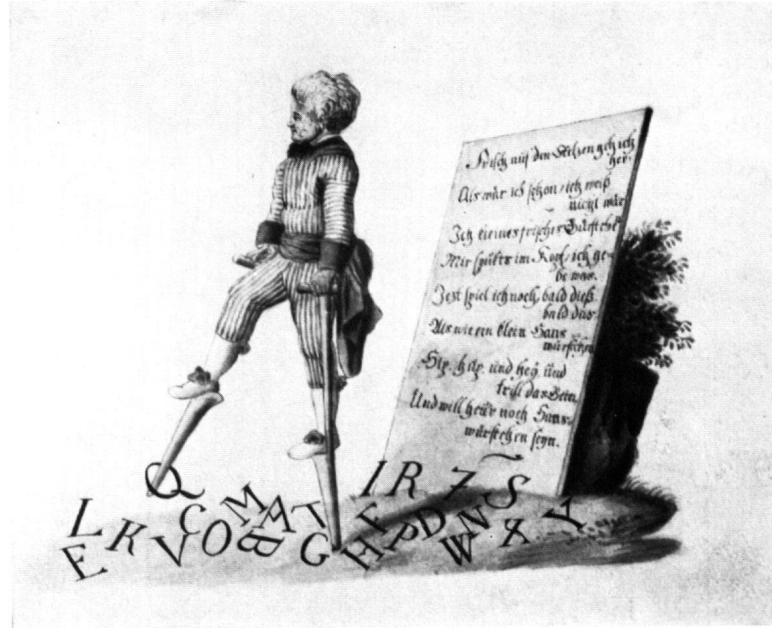 Frisch auf den Stelzen geh ich
her.
Als wär ich schon, ich weiß
nicht wär
Ich frisches
Mir spukts im Kopf, ich ge-
be was.
Jezt spiel ich noch, bald dieß
bald das.
Als wie ein klein Hans
würstchen
und hey. und
trill das Bein
Und will heur noch Hans-
würstchen seyn.
Q I R Z S
L K C M A T F P D N X Y
E V O B G H W